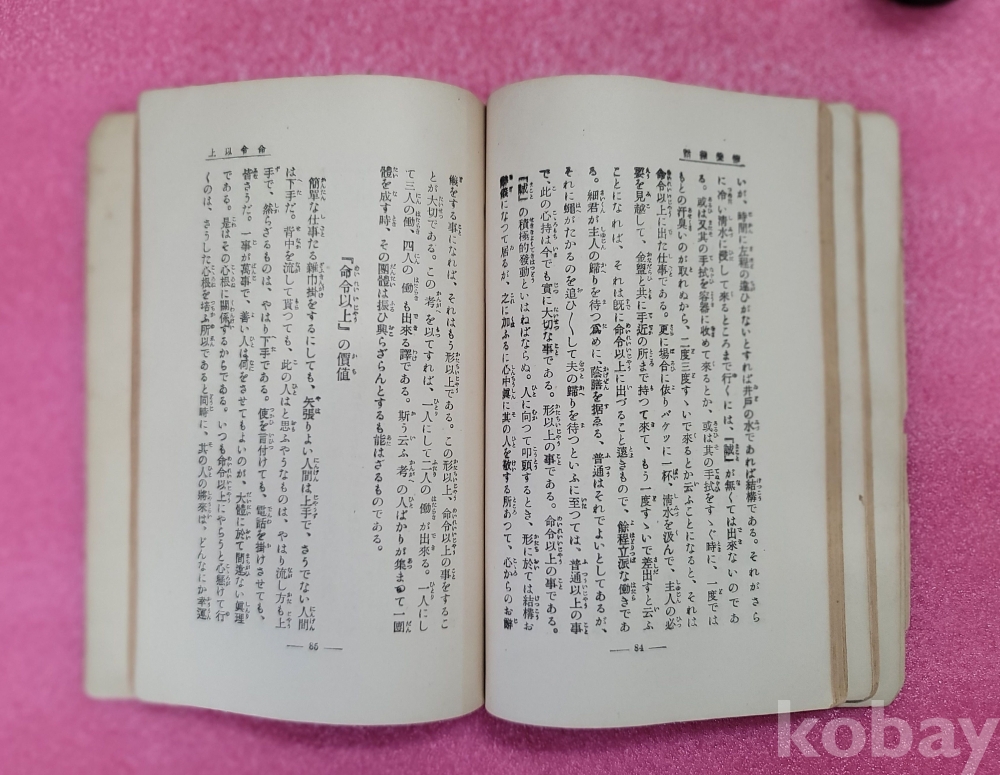 いが、時間に左程の違ひがないとすれば井戸の水であれば結構である。それがさら
に冷い清水に浸して来るところまで行くには、『誠』が無くては出来ないのであ
る。或は又其の手拭を容器に收めて来るとか、或は其の手拭をすゝぐ時に、一度では
もとの汗臭いのが取れぬから、二度三度すゝいで来るとか云ふことになると、それは
命令以上に出た仕事である。更に場合に依りバケツに一杯、清水を汲んで、主人の必
要を見越して、金盥と共に手近の所まで持つて来て、もう一度すゝいで差出すと云ふ
ことになれば、それは既に命令以上に出づること遠きもので、餘程立派な働きであ
る。細君が主人の歸りを待つ為めに、蔭膳を据ゑる、普通はそれでよいとしてあるが、
それに蠅がたかるのを追ひ〳〵して夫の歸りを待つといふに至つては、普通以上の事
で、此の心持は今でも實に大切な事である。形以上の事である。命令以上の事である。
『誠』の積極的發動といはねばならぬ。人に向つて叩頭するとき、形に於ては結構お
になつて居るが、之に加ふるに心中眞に其の人を敬する所あつて、心からのお辭
— 84 —
命令以上
儀をする事になれば、それはもう形以上である。この形以上、命令以上の事をするこ
とが大切である。この考を以てすれば、一人にして二人の働が出来る。一人にし
て三人の働、四人の働も出来る譯である。斯う云ふ考の人ばかりが集まつて一團
體を成す時、その團體は振ひ興らざらんとするも能はざるものである。
『命令以上』の價値
簡單な仕事たる雜巾掛をするにしても、矢張りよい人間は上手で、さうでない人間
は下手だ。背中を流して貰つても、此の人はと思ふやうなものは、やはり流し方も上
手で、然らざるものは、やはり下手である。使を言付けても、電話を掛けさせても、
皆さうだ。一事が萬事で、善い人は何をさせてもよいのが、大體に於て間違ない眞理
である。是はその心根に關係するからである。いつも命令以上にやらうと心懸けて行
くのは、さうした心根を培ふ所以であると同時に、其の人の將來は、どんなにか幸運
— 85 —
kobay